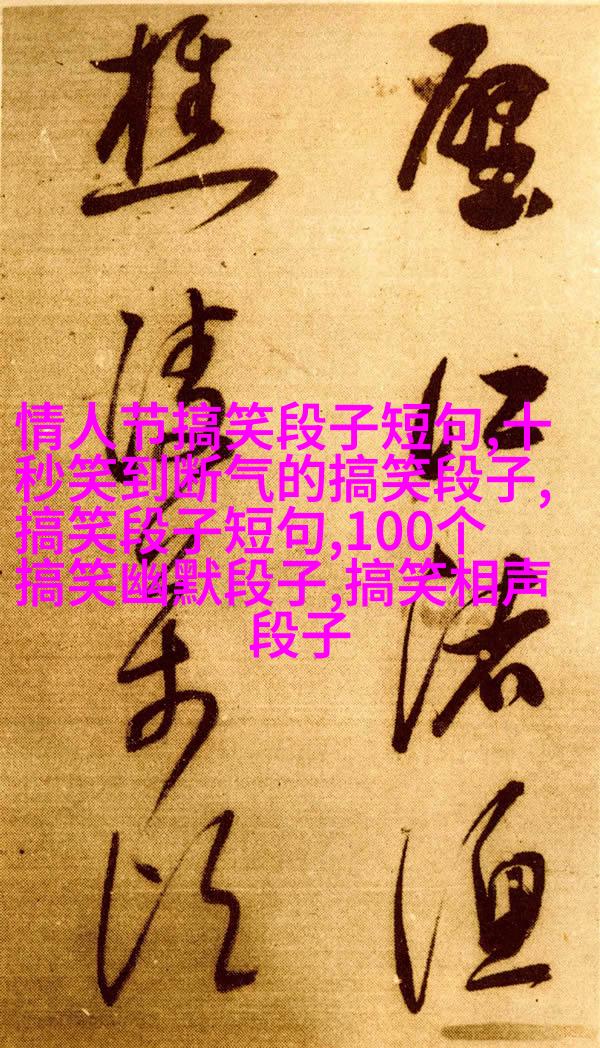 情人节搞笑段子短句,十
秒笑到断气的搞笑段子,
搞笑段子短句,100个
搞笑幽默段子,搞笑相声
段子
江渚漁
樵清